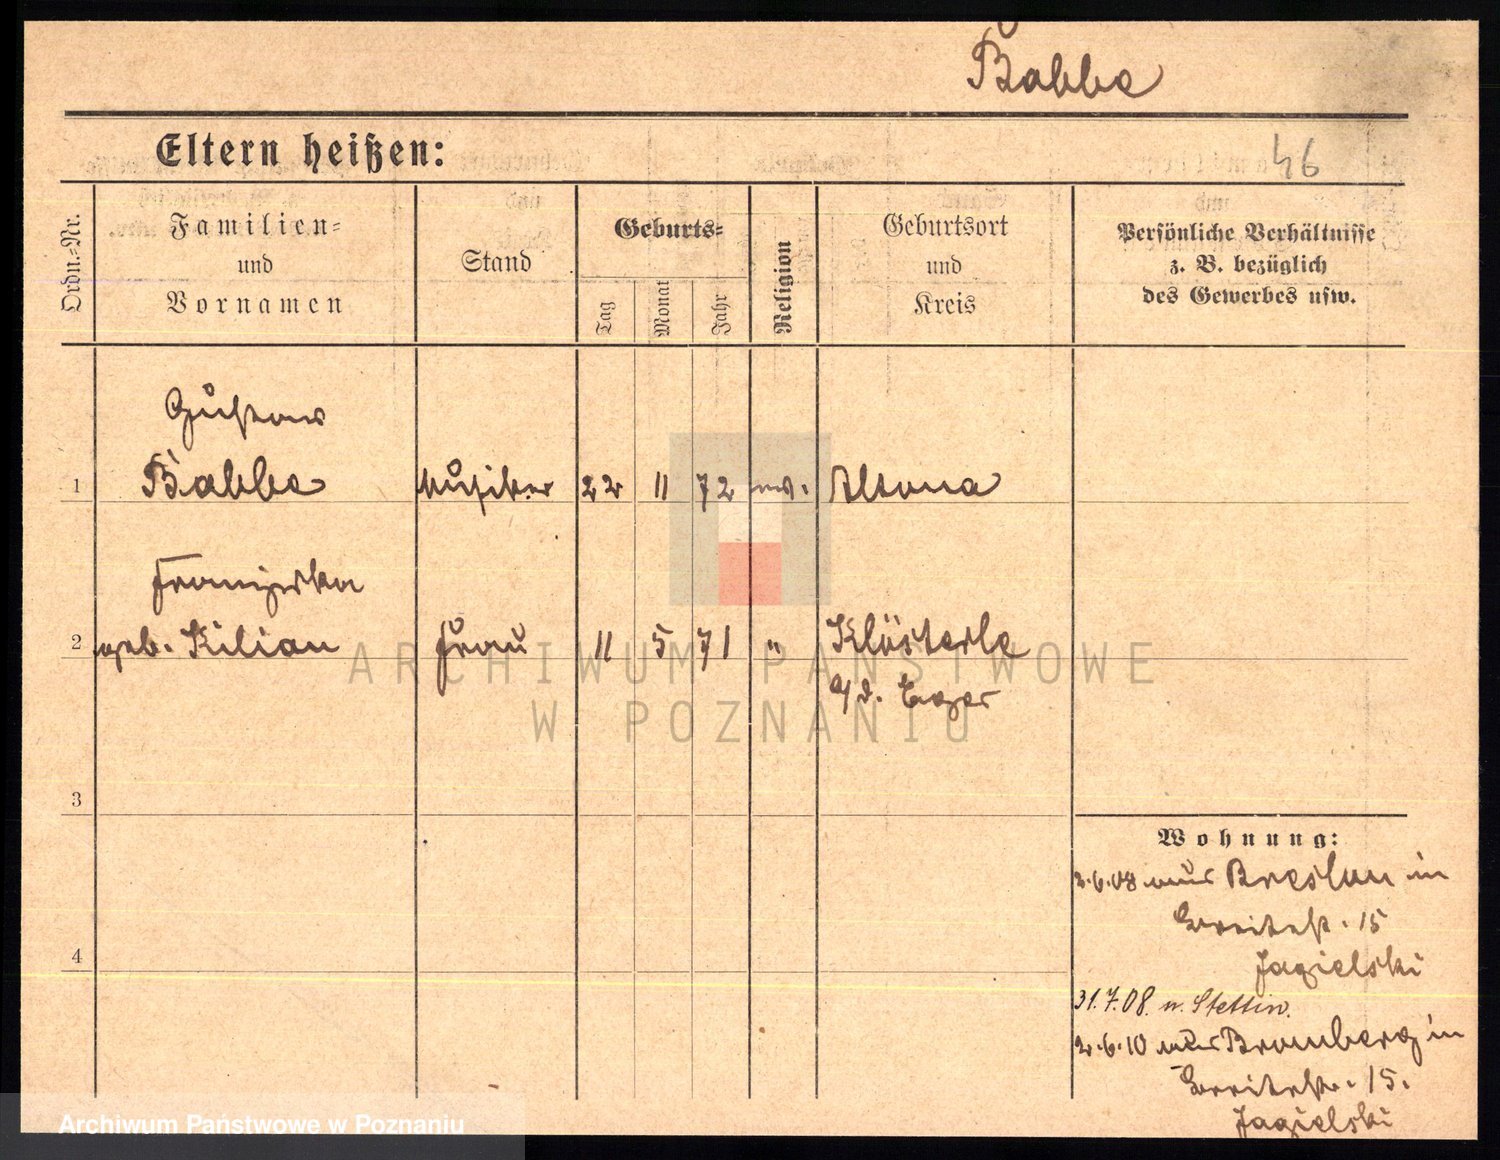 Babbe
Eltern heißen:
46
Ordn.-Nr.
Familien-
und
Vornamen
Stand
Geburts-
Tag
Monat
Jahr
Religion
Geburtsort
und
Kreis
Persönliche Verhältnisse
z. B. bezüglich
des Gewerbes usw.
Gustav
1 Babbe Musiker 22 11 72 Altona
Franziska
2 geb. Kilian Frau 11 5 71 " Klösterle
a/d. Eger
3
4
Wohnung:
2.6.08 aus Breslau in
Breitestr. 15
Jagielski
31.7.08. n. Stettin.
2.6.10 aus Bromberg in
Breitestr. 15.
Jagielski
ARCHIWUM PAŃSTWOWE
W POZNANIU
Archiwum Państwowe w Poznaniu